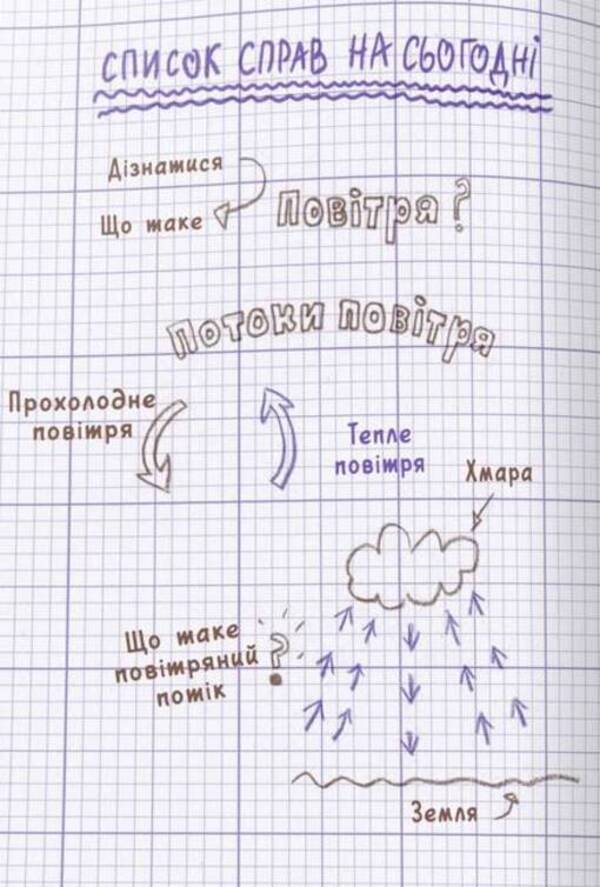 СПИСОК СПРАВ НА СЬОГОДНІ
Дізнатися
Що таке
Повітря?
ПОТОКИ ПОВІТРЯ
Прохолодне
повітря
Тепле
повітря
Хмара
Що таке
повітряний
потік
?
Земля